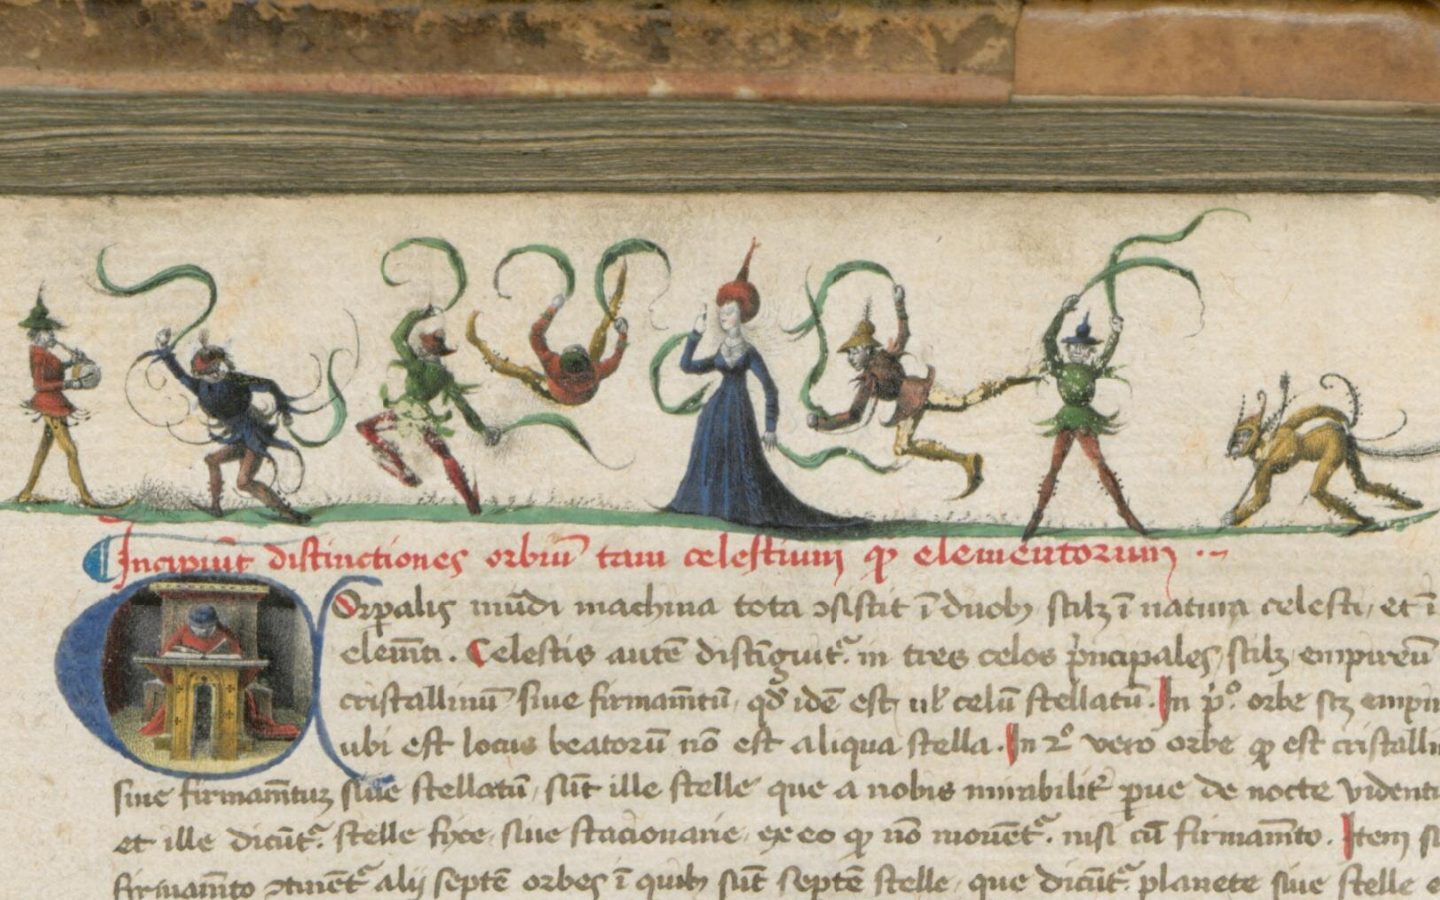 Incipiūt distinctiones orbiū tam celestium qͣ elementorum
Corpalis mūdi machina tota ↄsistit ī duobꝫ scilꝫ ī natura celesti et ī
elem̄ti. Celestis autē distīguitᷣ in tres celos p̍ncipales scilꝫ empireū
cristallinū siue firmam̄tū, qđ idē est ul̕ celū stellatū. In p̍º orbe scꝫ
ubi est locus beatorū nō est aliqua stella. In 2º vero orbe qͣ est
siue firmam̄tuꝫ siue stellatū, sūt ille stelle que a nobis mirabilit̕ de nocte
et ille dicūtᷣ stelle fixe siue stacionarie, ex eo qͣ nō mouētᷣ nisi cū firmam̄to. Item
firmam̄to ↄtinētᷣ alij septē orbes ī quibꝫ sūt septē stelle, que dicūtᷣ planete siue stelle